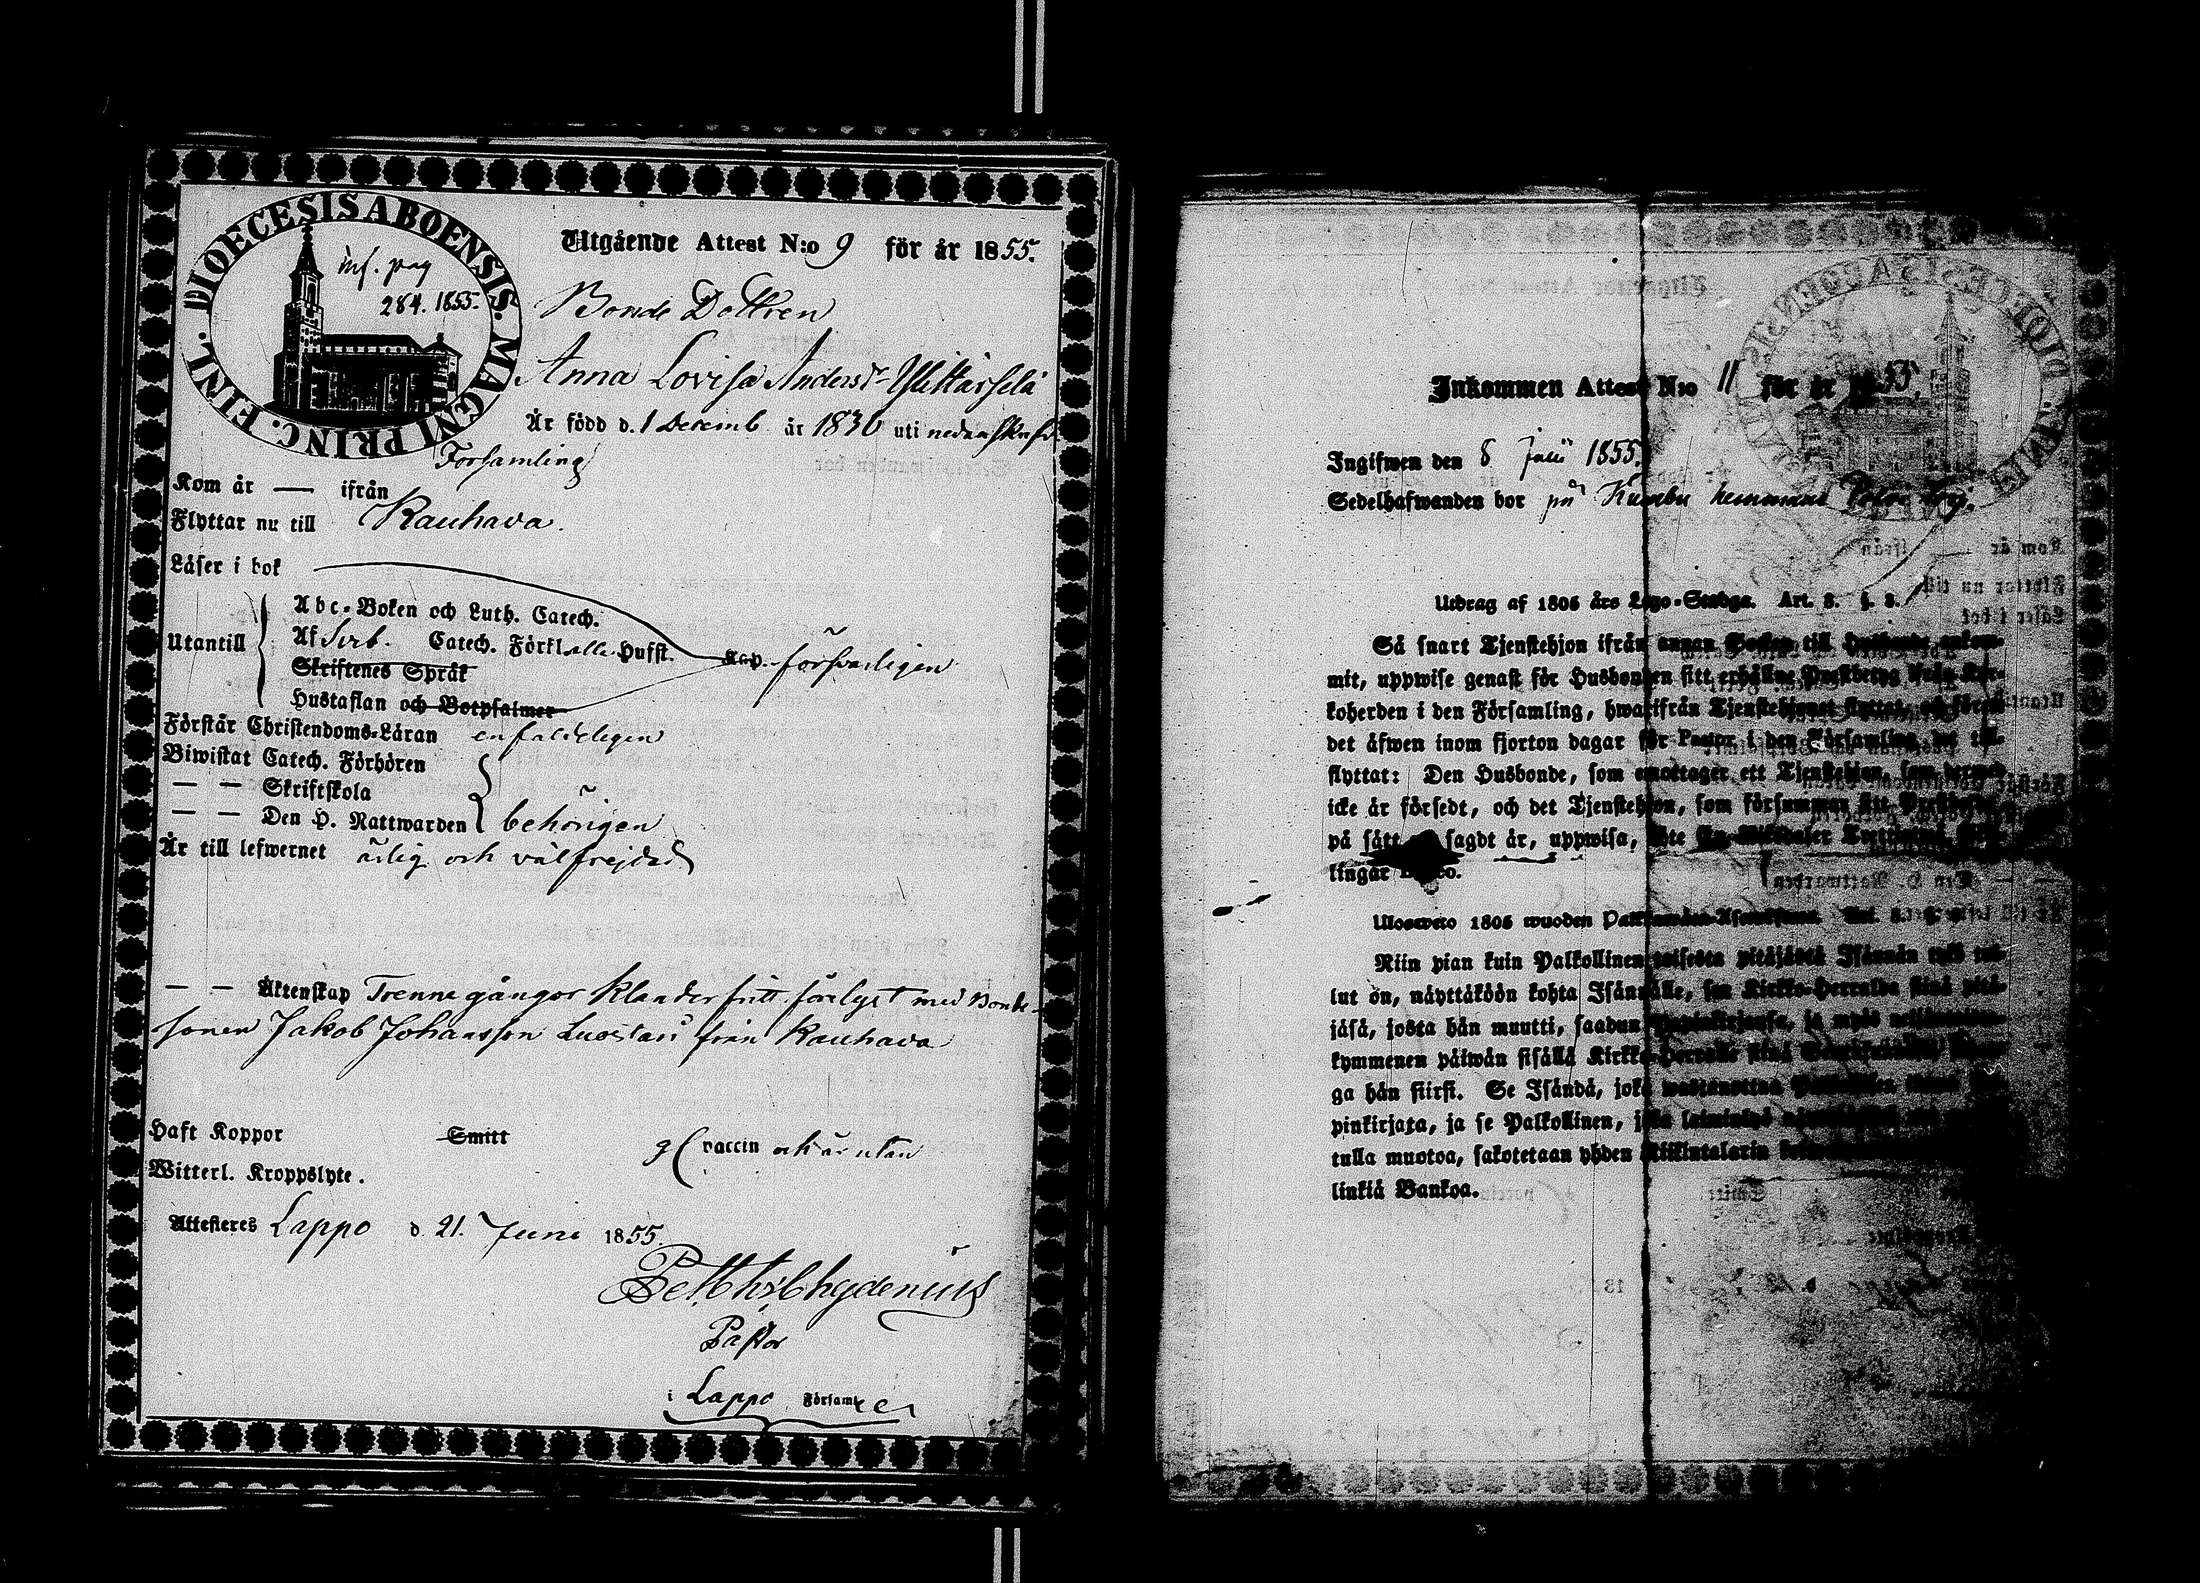 DIOECESIS ABOENSIS. MAGNI PRINC. FINL.
inf. pag
284. 1855.
Utgående Attest N:o 9 för år 1855.
Bonde Dottren
Anna Lovisa Andersdr
Är född d. 1 Decemb år 1836 uti
Församling
Kom år — ifrån
Flyttar nu till Kauhava.
Läser i bok
Utantill
Abc-Boken och Luth. Catech.
Af Sveb. Catech. Förkl. alla Hufst. Kap. försvarligen
Skriftenes Språk
Hustaflan och Botpsalmer
Förstår Christendoms-Läran enfaldeligen
Biwistat Catech. Förhören
— — Skriftskola
— — Den H. Nattwarden behörigen
Är till lefwernet ärlig och välfrejdad
— — Äktenskap Trenne gångor klanderfritt förelyst med Bonde
sonen Jakob Johansson Luostari från Kauhava
Haft Koppor Smitt vaccin och är utan
Witterl. Kroppslyte.
Attesteras Lappo d. 21. Juni 1855.
Chydenius
Pastor
i Lappo Församl
Inkommen Attest N:o 11 för år 1855.
Ingifwen den 8 Juli 1855.
Sedelhafwanden bor på hemmans
Utdrag af 1805 års Lego-Stadga. Art. 3. §. 3.
Så snart Tjenstehjon ifrån annan Socken till Husbonde ankom-
mit, uppwise genast för Husbonden sitt erhållne Prestbetyg ifrån Kyr-
koherden i den Församling, hwarifrån Tjenstehjonet flyttat, och förete
det äfwen inom fjorton dagar för Pastor i den Församling, det till-
flyttat: Den Husbonde, som emottager ett Tjenstehjon, som dermed
icke är försedt, och det Tjenstehjon, som försummar sitt
på sätt sagdt är, uppwisa,
lingar
Ulosweto 1805 wuoden Art. 3. §. 3.
Niin pian kuin Palkollinen toisesta pitäjästä Isännän tykö tul-
lut on, näyttäköön kohta Isännälle, sen Kirkko-Herralda siinä pitä-
jäsä, josta hän muutti, saadun ja myös
kymmenen päiwän sisällä Kirkko-Herralle siinä
ga hän siirsi. Se Isändä, joka wastanottaa
pinkirjata, ja se Palkollinen, joka
tulla muotoa, sakotetaan yhden Riikintalarin
linkiä Bankoa.